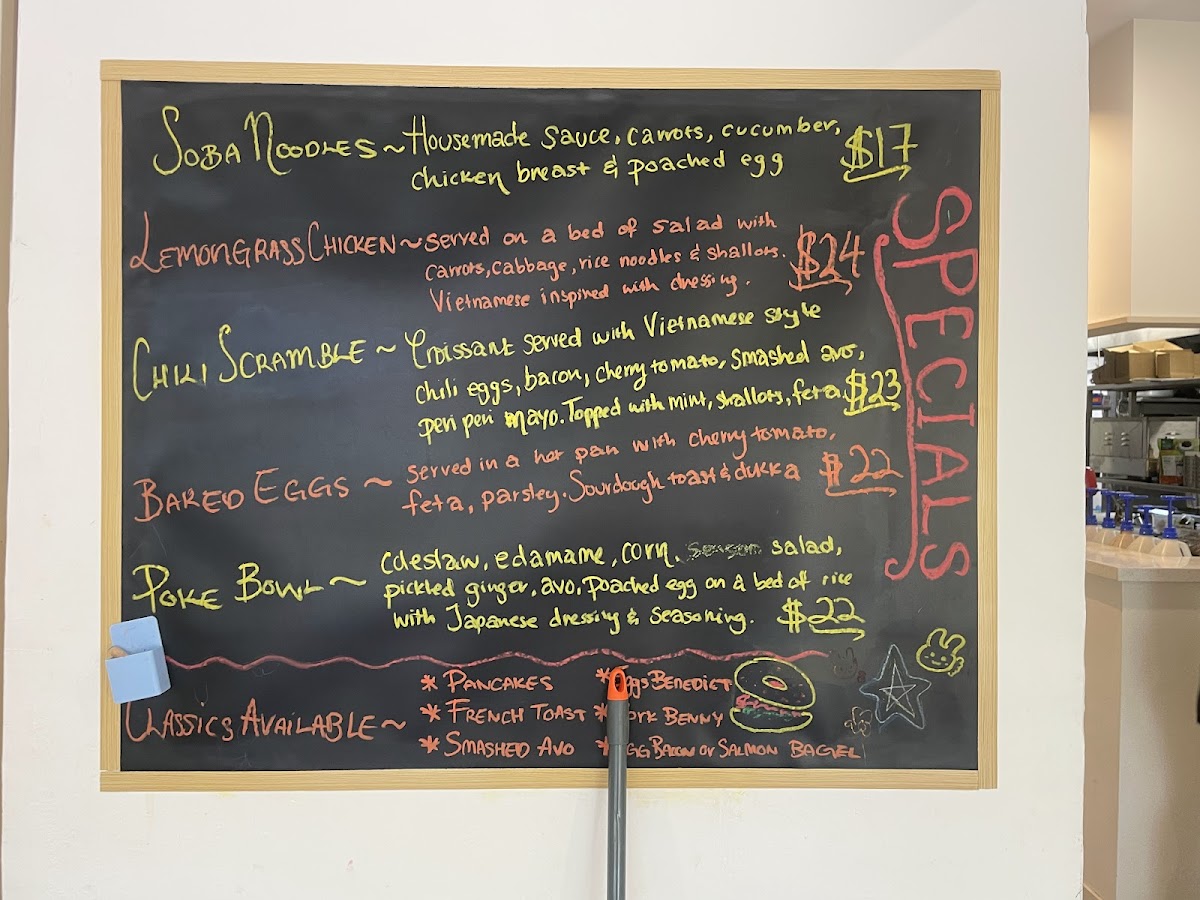 SOBA NOODLES ~ Housemade sauce, carrots, cucumber,
chicken breast & poached egg
$17
LEMONGRASS CHICKEN ~ served on a bed of salad with
carrots, cabbage, rice noodles & shallots.
Vietnamese inspired with dressing.
$24
CHILI SCRAMBLE ~ Croissant served with Vietnamese style
chili eggs, bacon, cherry tomato, smashed avo,
peri peri mayo. Topped with mint, shallots, feta.
$23
BAKED EGGS ~ served in a hot pan with cherry tomato,
feta, parsley. Sourdough toast & dukka
$22
POKE BOWL ~ coleslaw, edamame, corn, salad,
pickled ginger, avo, poached egg on a bed of rice
with Japanese dressing & seasoning.
$22
SPECIALS
CLASSICS AVAILABLE ~
* PANCAKES
* FRENCH TOAST
* SMASHED AVO
* Eggs BENEDICT
* BENNY
* EGG BACON or SALMON BAGEL